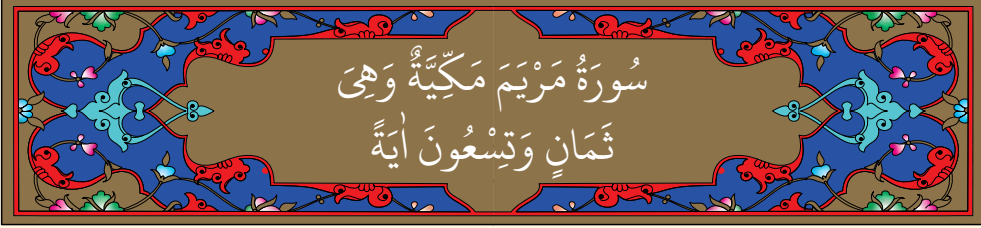 سُورَةُ مَرْيَمَ مَكِّيَّةٌ وَهِىَ
ثَمَانٍ وَتِسْعُونَ اٰيَةً